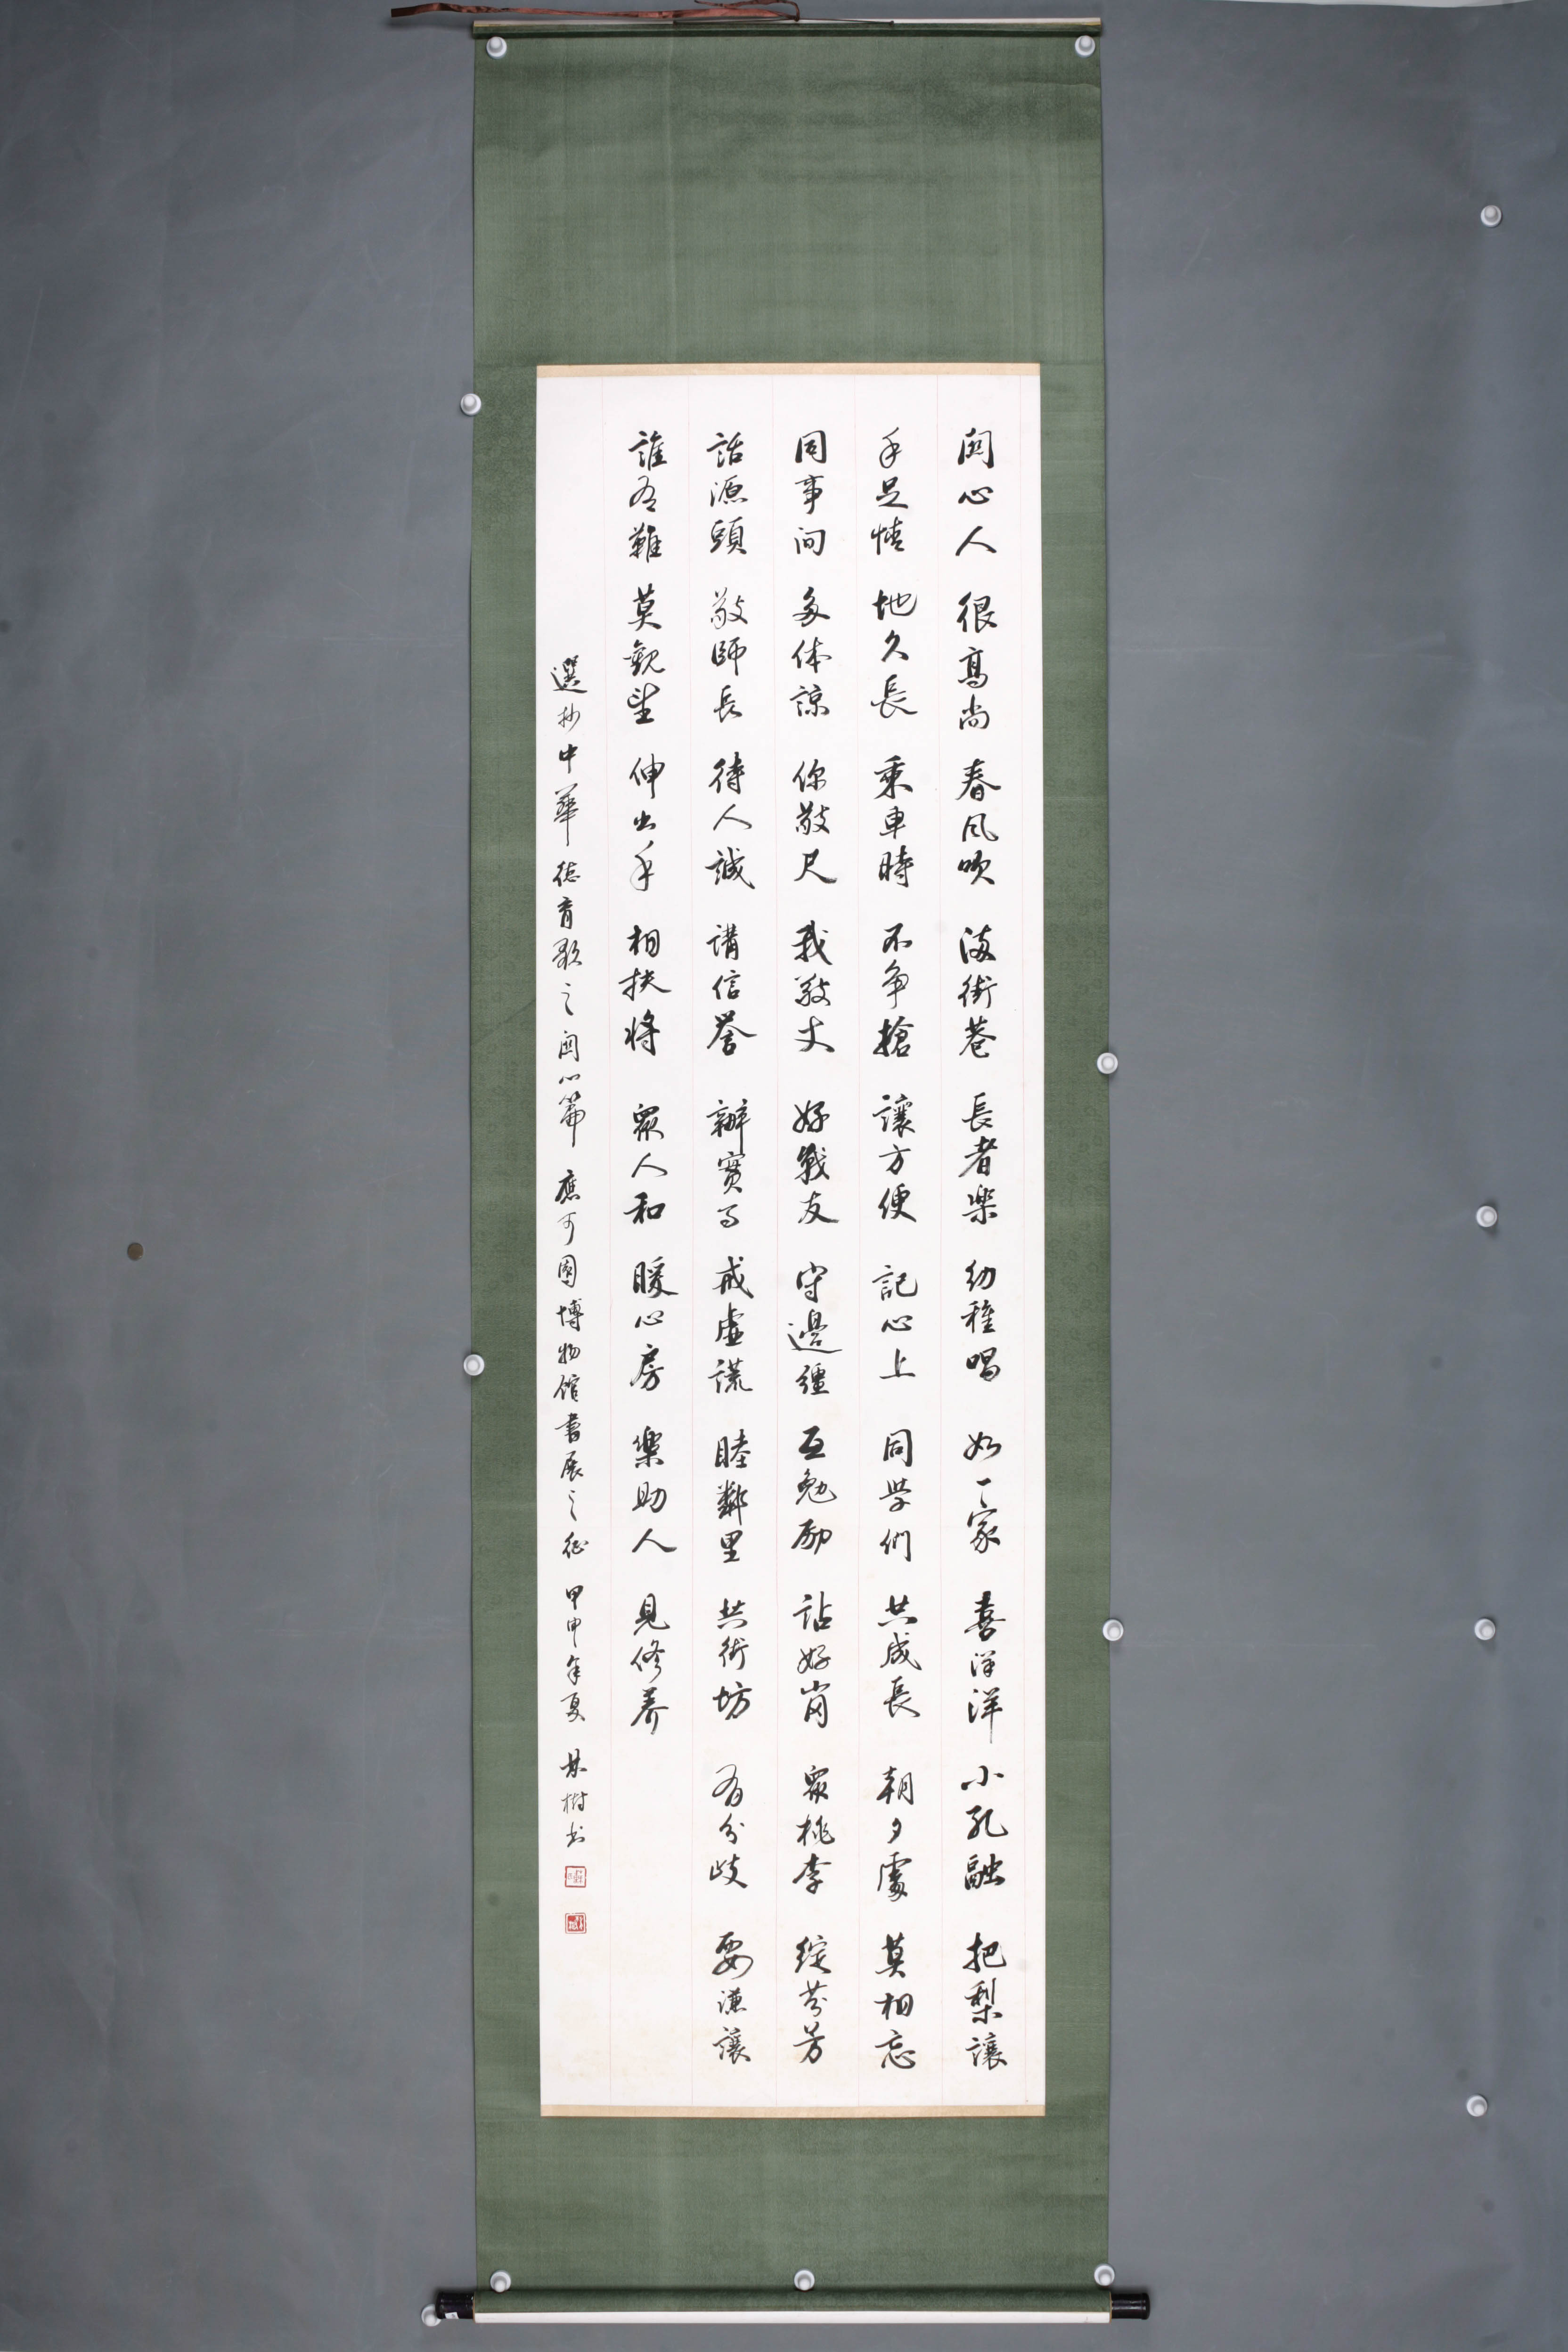 関心人 很高尚 春风吹 滿街巷 長者樂 幼稚唱 如一家 喜洋洋 小孔融 把梨讓
手足情 地久長 乘車時 不争搶 讓方便 記心上 同学們 共成長 朝夕處 莫相忘
同事间 多体諒 你敬尺 我敬丈 好戰友 守邊疆 互勉励 站好岗 眾桃李 綻芬芳
話源頭 敬師長 待人誠 講信誉 辦實事 戒虚謊 睦鄰里 共街坊 有分歧 要謙讓
誰有難 莫觀望 伸出手 相扶将 眾人和 暖心房 樂助人 見修养
選抄中華德育歌之関心篇 應可園博物館書展之征 甲申年夏 林樹书